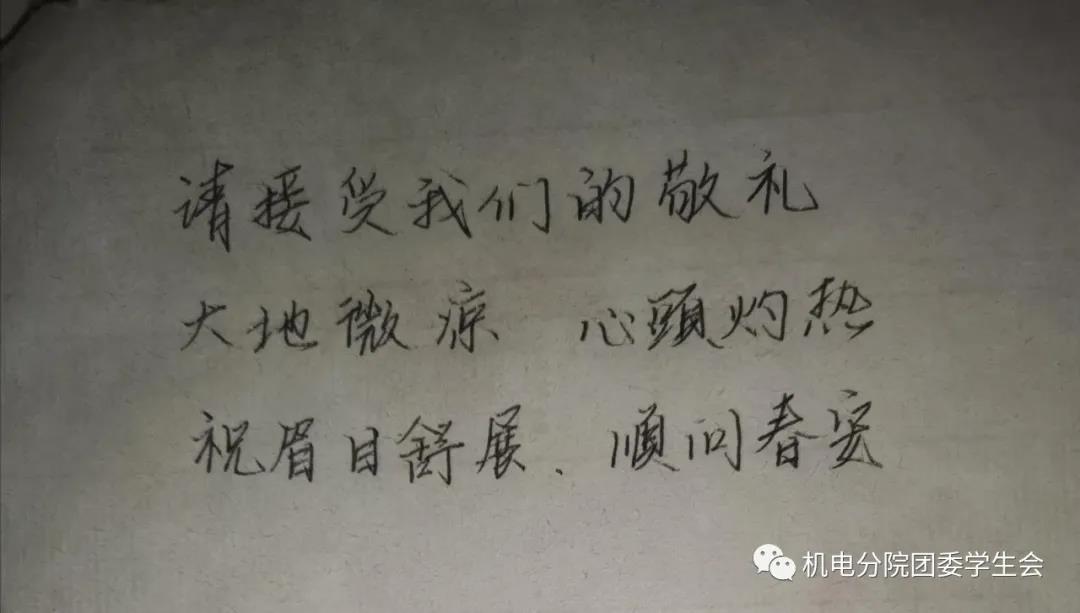 请接受我们的敬礼
大地微凉 心頭灼热
祝眉目舒展、顺问春安
机电分院团委学生会